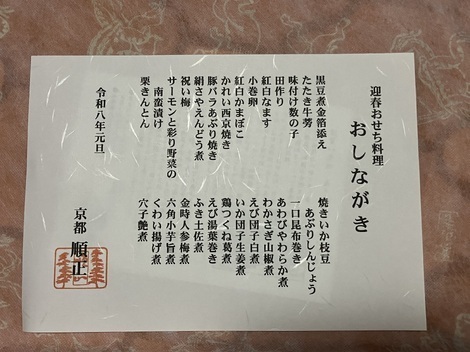 迎春おせち料理
おしながき
黒豆煮金箔添え
たたき牛蒡
味付け数の子
田作り
紅白なます
小巻卵
紅白かまぼこ
かれい西京焼き
豚バラあぶり焼き
絹さやえんどう煮
祝い梅
サーモンと彩り野菜の
南蛮漬け
栗きんとん
焼きいか枝豆
あぶりしんじょう
一口昆布巻き
あわびやわらか煮
わかさぎ山椒煮
えび団子白煮
いか団子生姜煮
鶏つくね葛煮
えび湯葉巻き
ふき土佐煮
金時人参梅煮
六角小芋旨煮
くわい揚げ煮
穴子艶煮
令和八年元旦
京都 順正